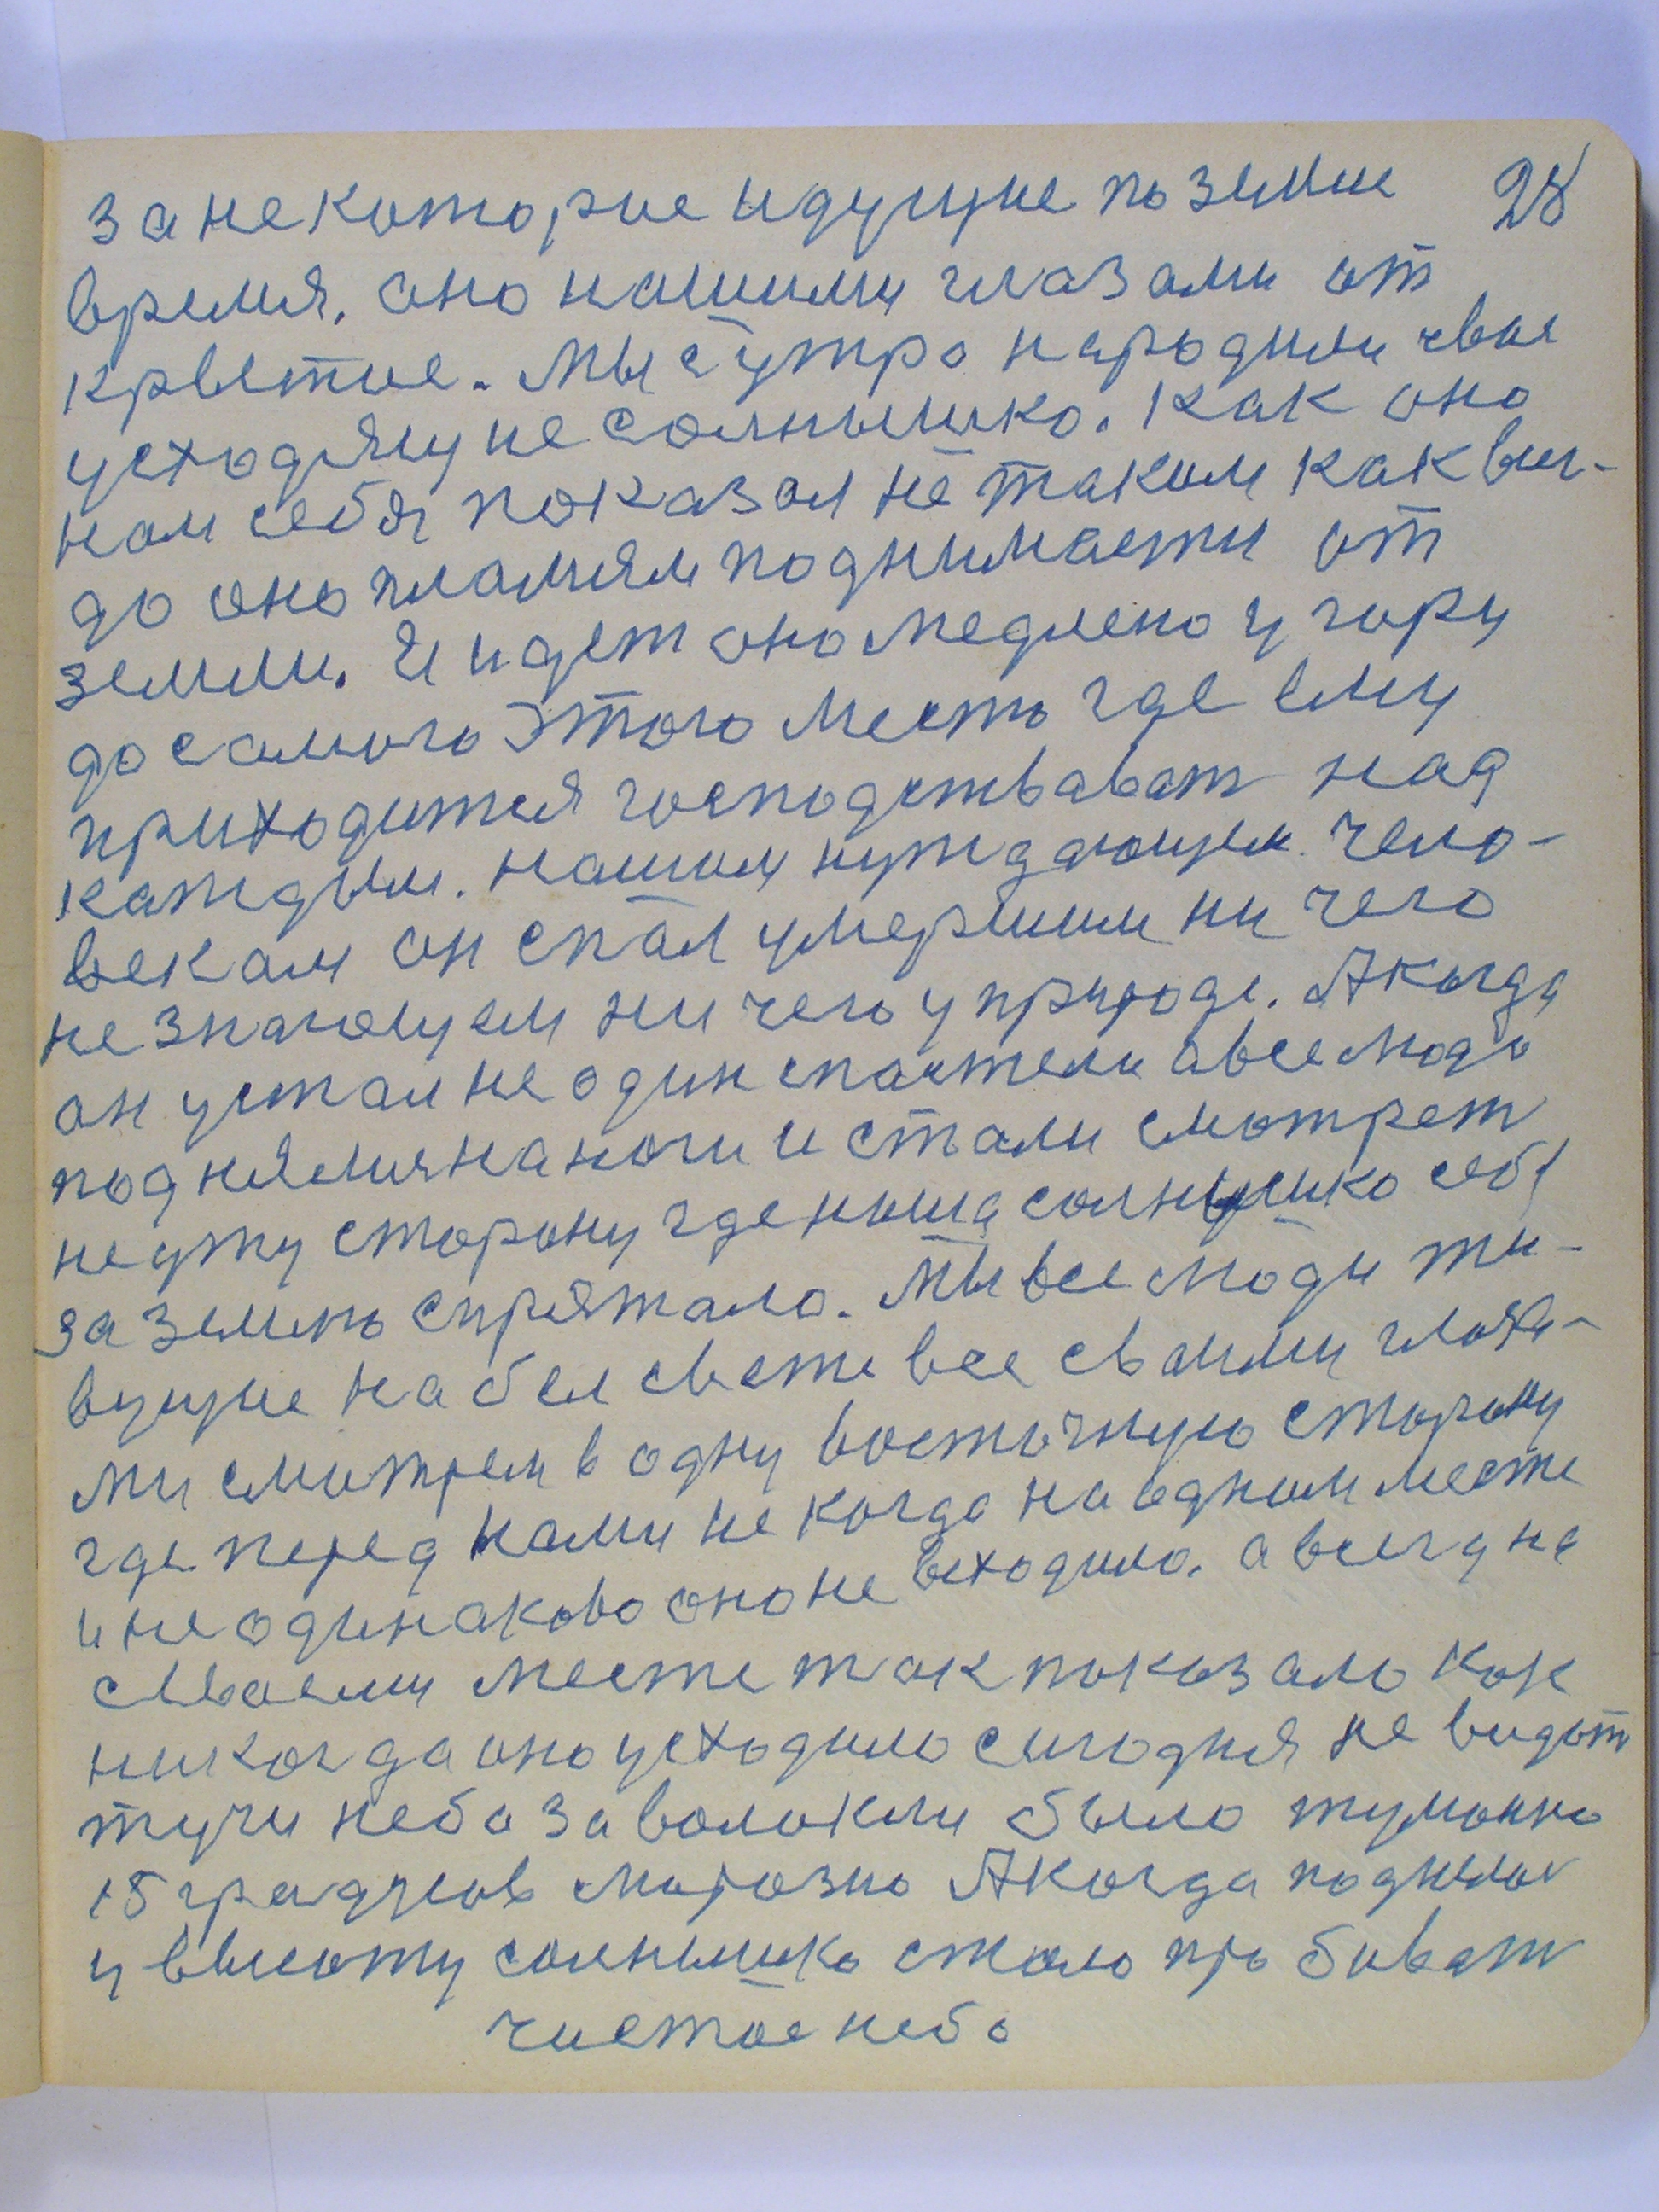 за некоторие идущие по земле 28
время. оно нашими глазами от
крытие. Мы с утра народили свое
усходящуие солнышко. Как оно
нам себя показал не таким как виг-
до оно пламям поднимаети от
земли. И идет оно медлено у гору
до самого этого месть где ему
приходится господствават над
каждым. нашим нуждающем чело-
векам он спал умершим ни чего
не знающем ни чего у природе. А когда
он устал не один спастели а все люди
поднялися на ноги и стали смотрет
на уту сторону где наша солнышко себя
за землю спрятало. Мы все люди жи-
вущие на бел свете все своими глаза-
ми смотрем в одну восточную сторону
где перед нами не когда на одном месте
и не одинаково оно не всходило. а всегда на
своем месте так показало как
никогда оно усходило сигодня не видат
тучи неба заволокли было туманно
15 градусов морозно А когда поднялос
у высоту солнышко стало пробиват
чистое небо